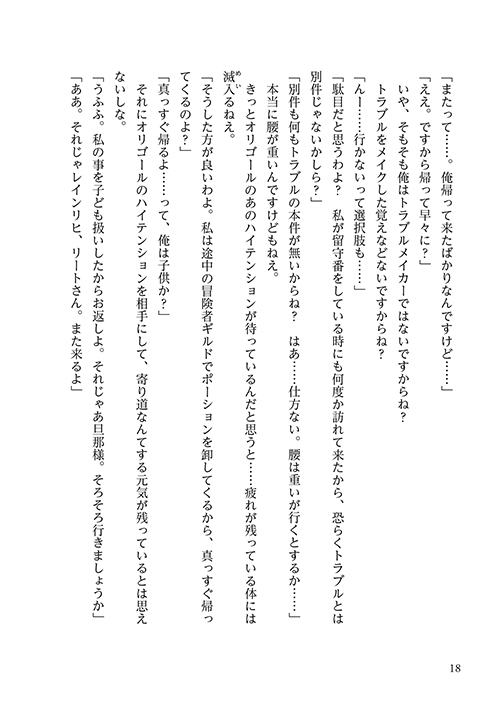 「またって……。俺帰って来たばかりなんですけど……」
「ええ。ですから帰って早々に？」
いや、そもそも俺はトラブルメイカーではないですからね？
トラブルをメイクした覚えなどないですからね？
「んー……行かないって選択肢も……」
「駄目だと思うわよ？　私が留守番をしている時にも何度か訪れて来たから、恐らくトラブルとは
別件じゃないかしら？」
「別件も何もトラブルの本件が無いからね？　はあ……仕方ない。腰は重いが行くとするか……」
本当に腰が重いんですけどもねえ。
きっとオリゴールのあのハイテンションが待っているんだと思うと……疲れが残っている体には
滅入るねえ。
めい
「そうした方が良いわよ。私は途中の冒険者ギルドでポーションを卸してくるから、真っすぐ帰っ
てくるのよ？」
「真っすぐ帰るよ……って、俺は子供か？」
それにオリゴールのハイテンションを相手にして、寄り道なんてする元気が残っているとは思え
ないしな。
「うふふ。私の事を子ども扱いしたからお返しよ。それじゃあ旦那様。そろそろ行きましょうか」
「ああ。それじゃレインリヒ、リートさん。また来るよ」
18